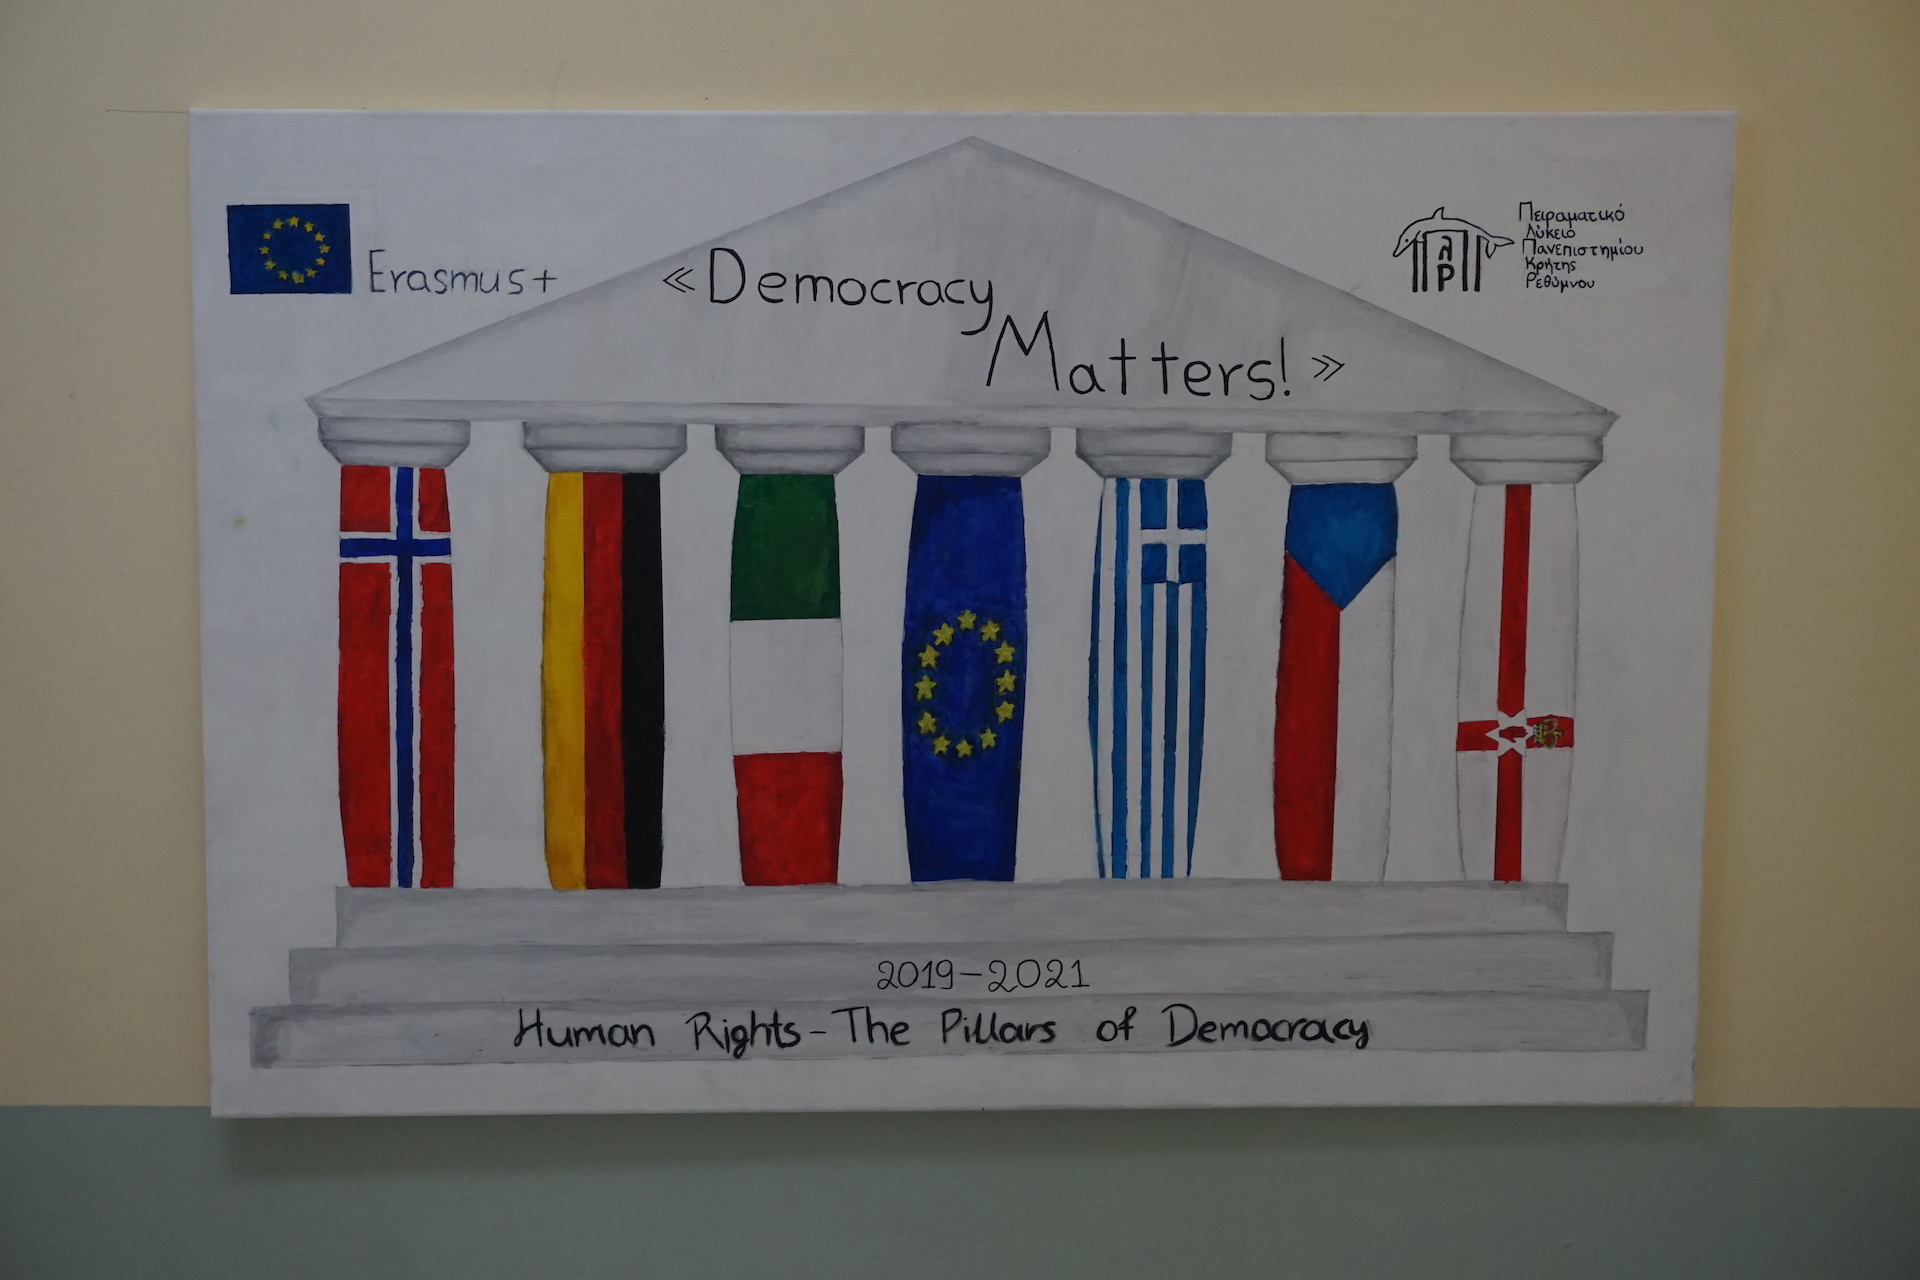 Erasmus+
«Democracy
Matters!»
λ
Ρ
Πειραματικό
Λύκειο
Πανεπιστημίου
Κρήτης
Ρεθύμνου
2019-2021
Human Rights-The Pillars of Democracy